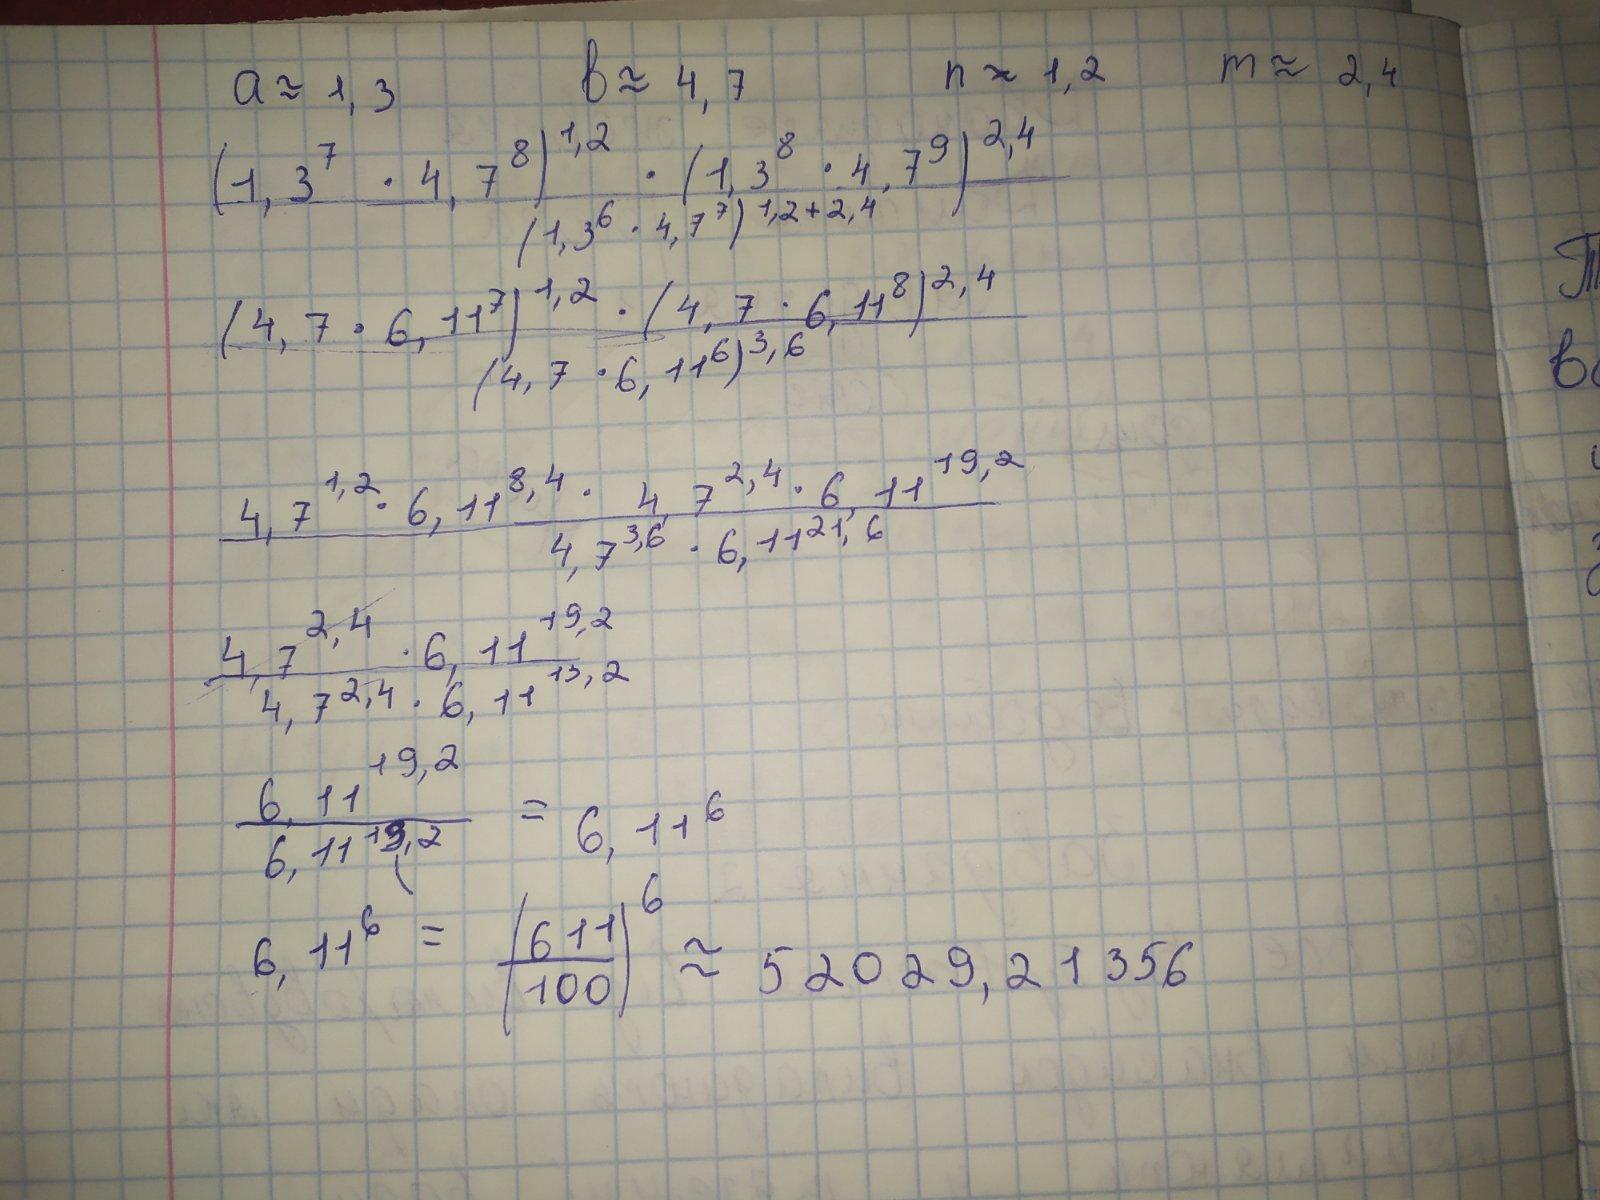 a ≈ 1,3 b ≈ 4,7 n ≈ 1,2 m ≈ 2,4
(1,3^7 · 4,7^8)^1,2 · (1,3^8 · 4,7^9)^2,4
(1,3^6 · 4,7^7)^1,2+2,4
(4,7 · 6,11^7)^1,2 · (4,7 · 6,11^8)^2,4
(4,7 · 6,11^6)^3,6
4,7^1,2 · 6,11^8,4 · 4,7^2,4 · 6,11^19,2
4,7^3,6 · 6,11^21,6
4,7^2,4 · 6,11^19,2
4,7^2,4 · 6,11^13,2
6,11^19,2
6,11^13,2 = 6,11^6
6,11^6 = (611/100)^6 ≈ 52029,21356